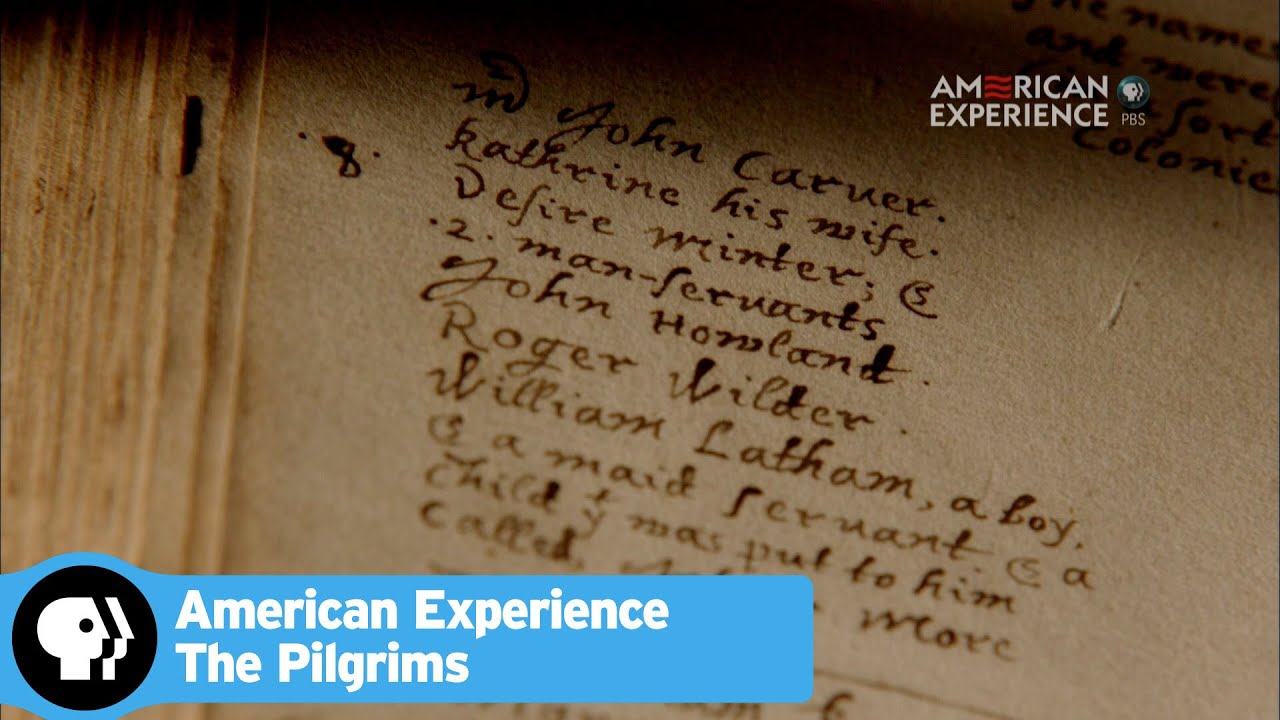 The names
and were
sort
Colonies
AMERICAN
EXPERIENCE
PBS
.8.
mr John Caruer.
kathrine his wife.
Desire minter; &
.2. man-seruants
John Howland.
Roger Wilder.
William Latham, a boy.
& a maid seruant. & a
child yt was put to him
called,
More
American Experience
The Pilgrims